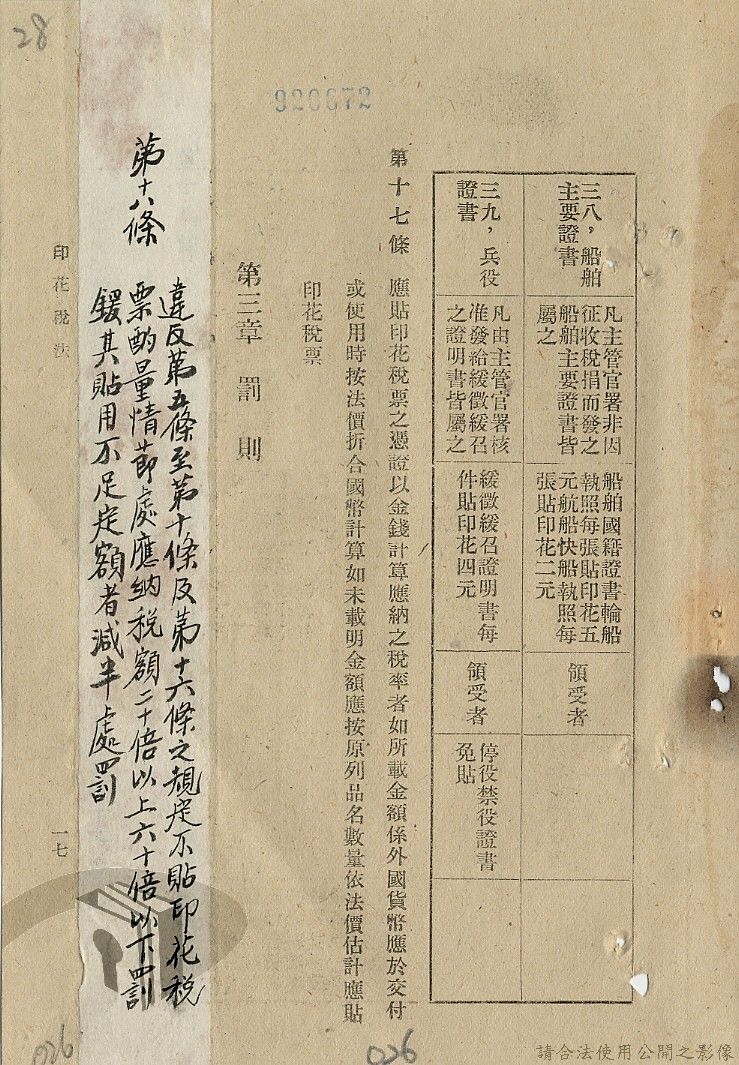 28
920672
三八，船舶
主要證書
凡主管官署非因
征收稅捐而發之
船舶主要證書皆
屬之
船舶國籍證書輪船
執照每張貼印花五
元航船快船執照每
張貼印花二元
領受者
三九，兵役
證書
凡由主管官署核
准發給緩徵緩召
之證明書皆屬之
緩徵緩召證明書每
件貼印花四元
領受者
停役禁役證書
免貼
第十七條　應貼印花稅票之憑證以金錢計算應納之稅率者如所載金額係外國貨幣應於交付
或使用時按法價折合國幣計算如未載明金額應按原列品名數量依法價估計應貼
印花稅票
第三章　罰則
第十八條　違反第五條至第十條及第十六條之規定不貼印花稅
票酌量情節處應納稅額二十倍以上六十倍以下罰
鍰其貼用不足定額者減半處罰
印花稅法
一七
026
026
請合法使用公開之影像